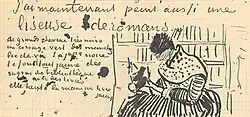 J'ai maintenant peint aussi une
liseuse de romans
de grands cheveux très noirs
un corsage vert des manches
lie de vin la jupe noire
le fond tout jaune
rayons de bibliothèque
elle tient
jaune